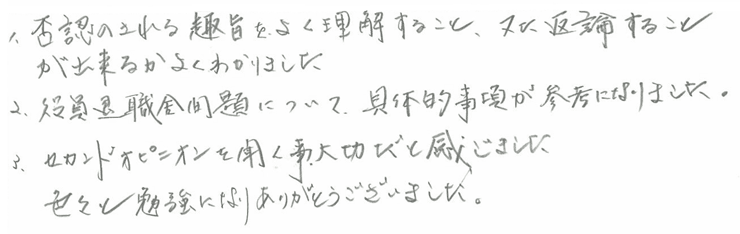 1、否認のされる趣旨をよく理解すること、又は返論すること
が出来るかよくわかりました
2、役員退職金問題について、具体的事項が参考になりました。
3、セカンドオピニオンを聞く事大切だと感じました
色々と勉強になりありがとうございました。